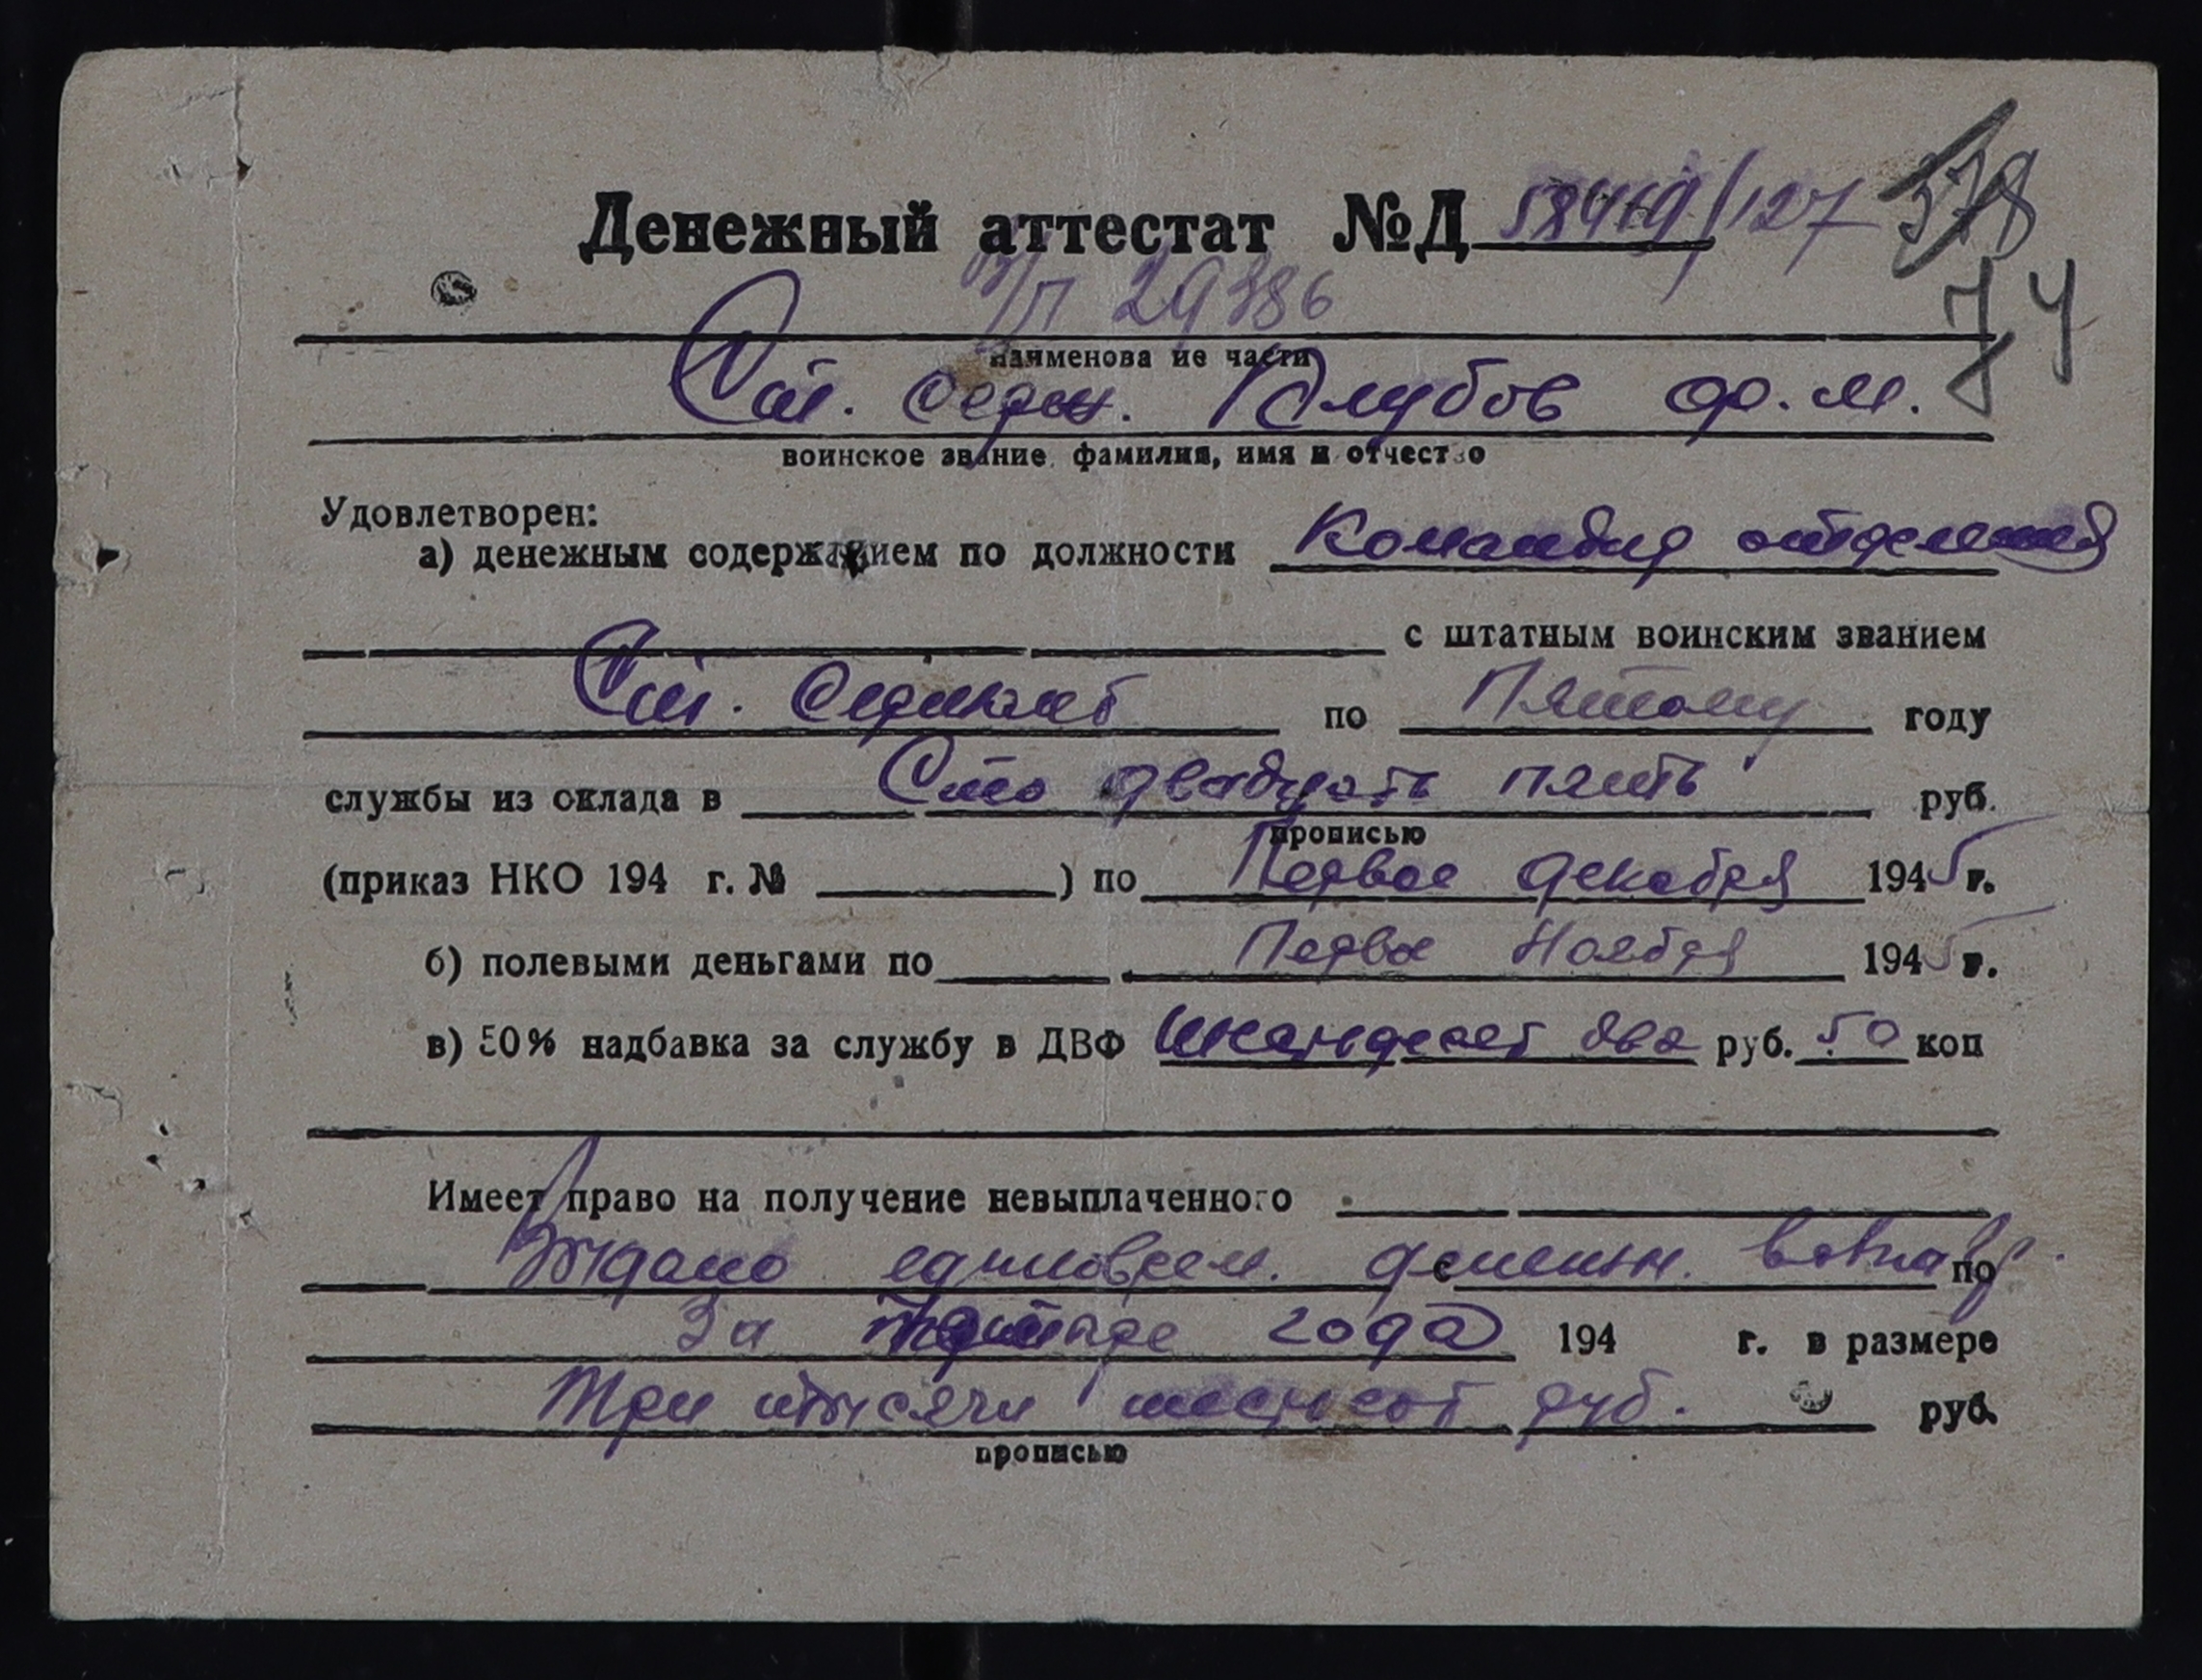 Денежный аттестат №Д 58419/127 378
П/П 29386
74
наименова ие части
Ст. серж. Клубов Ф. М.
воинское звание, фамилия, имя и отчество
Удовлетворен:
а) денежным содержанием по должности Командир отделения
с штатным воинским званием
Ст. Сержант по Пятому году
службы из оклада в Сто двадцать пять руб.
прописью
(приказ НКО 194 г. № ) по Первое декабря 1945 г.
б) полевыми деньгами по Первое Ноября 1945 г.
в) 50% надбавка за службу в ДВФ Шестьдесят два руб. 50 коп
Имеет право на получение невыплаченного
Выдано единоврем. денежн. вознагр. по
За четыре года 194 г. в размере
Три тысячи шестьсот руб. руб.
прописью